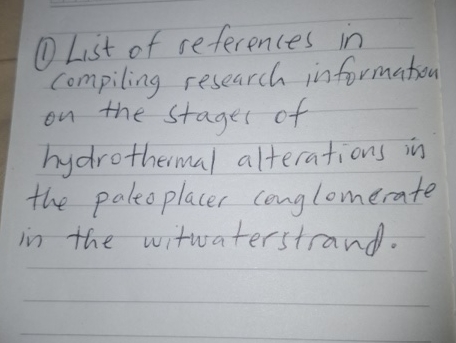 ① List of references in
compiling research information
on the stages of
hydrothermal alterations in
the paleoplacer conglomerate
in the witwaterstrand.